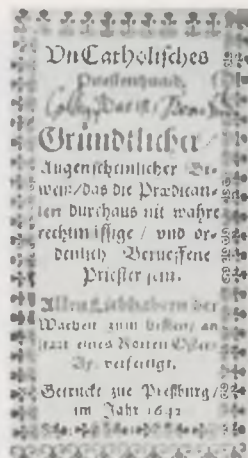 VnCatholisches
Gründtlicher /
Augenscheinlicher Be-
weiß / das die Prædican-
ten durchaus nit wahre
rechtmässige / vnd or-
denlich Berueffene
Priester sein.
Allen Liebhabern der
Warheit zum besten / an
statt eines Rotten
verfertigt.
Getruckt zue Preßburg /
im Jahr 1642